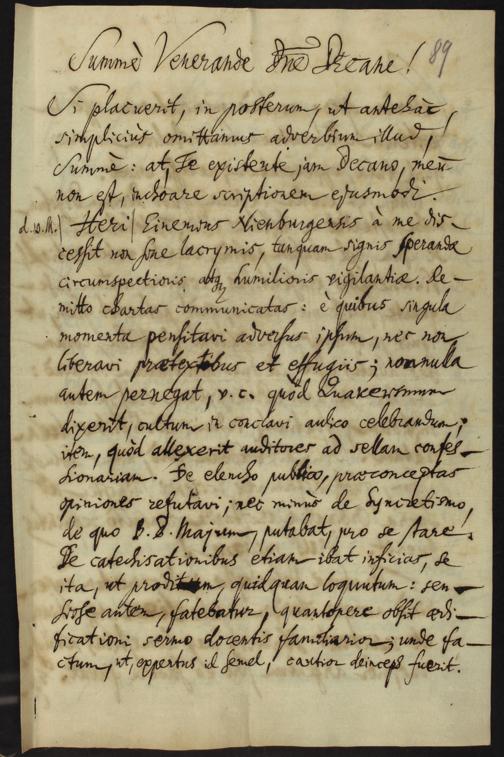 89
Summè Venerande Dne Decane!
Si placuerit, in posterum, ut antehàc,
simplicius omittamus adverbium illud,
Summè: at, Te existente jam Decano, meũ
non est, inchoare scriptionem ejusmodi.
Heri Nienburgensis à me dis-
cessit non sine lacrymis, tanquam signis sperandæ
circumspectionis, atq humilioris vigilantiæ. Re-
mitto chartas communicatas: è quibus singula
momenta pensitavi adversus ipsum, nec non
liberavi prætextibus et effugiis; nonnulla
autem pernegat, v. c. quòd Quakerismum
dixerit, cultum in conclavi aulico celebrandum;
item, quòd allexerit auditores ad sellam confes-
sionariam. De elencho publico, præconceptas
opiniones refutavi; nec minùs de Syncretismo,
de quo B. D. Majum, putabat, pro se stare.
De catechisationibus etiam ibat inficias, se
ita, ut proditum, quidquam loquutum: sen-
sisse autem, fatebatur, quantopere obsit ædi-
ficationi sermo docentis familiarior; unde fa-
ctum, ut, expertus id semel, cautior deinceps fuerit.